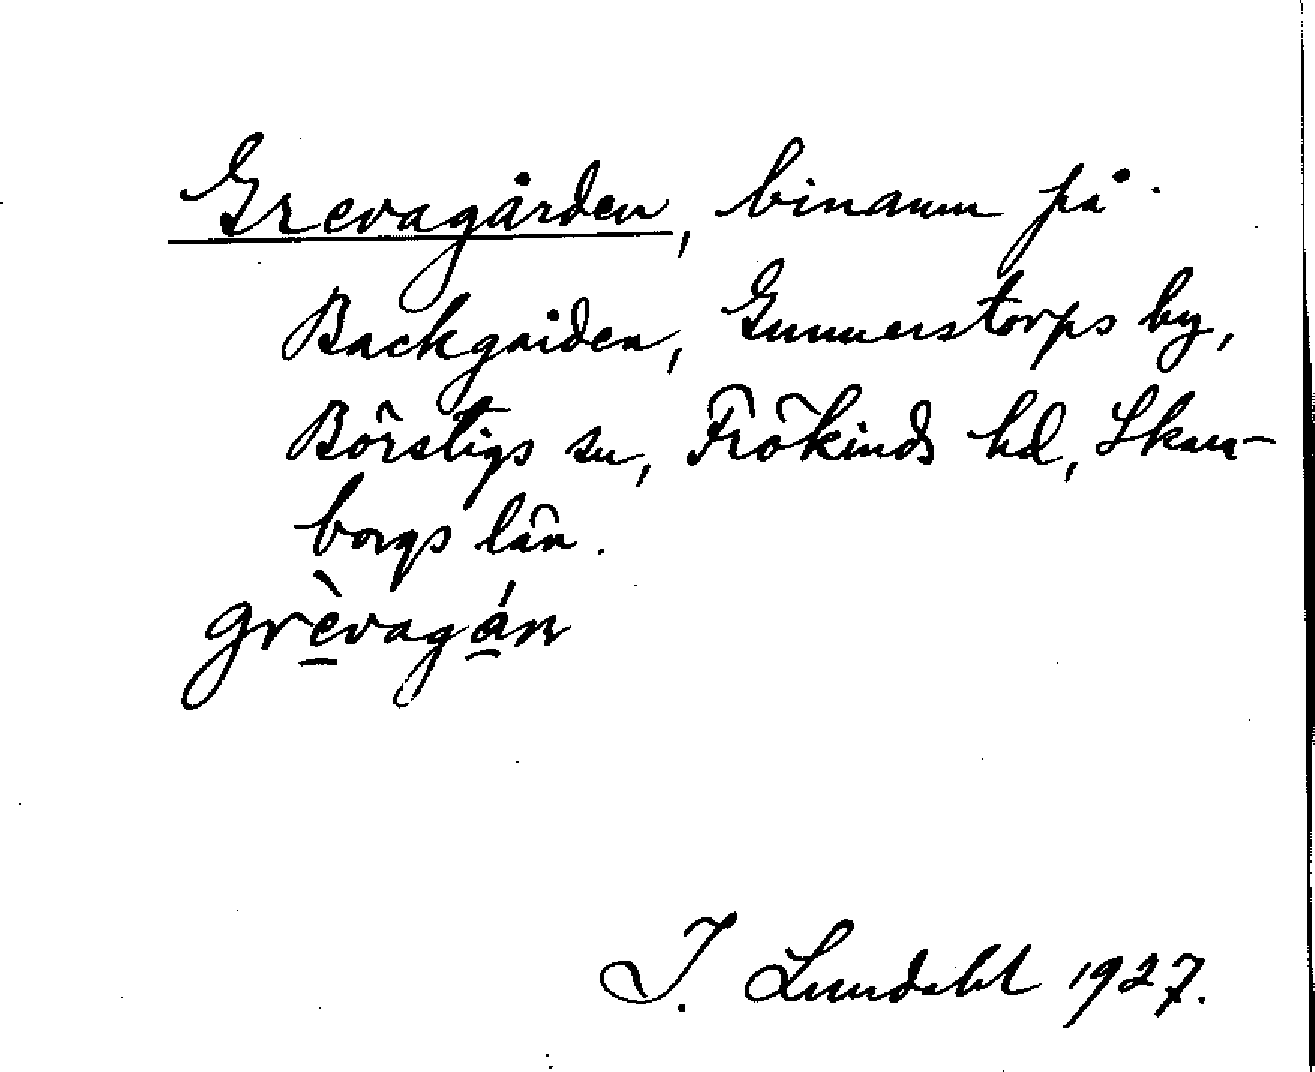 Grevagården, binamn på
Backgården, Gunnerstorps by,
Börstigs sn, Frökinds hd, Skara-
borgs län.
grèvagán
I. Lundahl 1927.